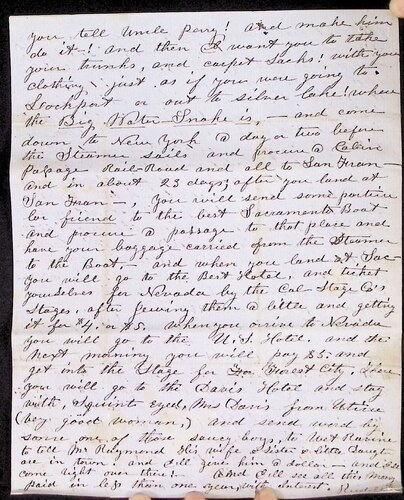 you tell Uncle Perry! and make him
do it—! and then I want you to take
your trunks, and carpet Sacks! with your
clothing, just as if you were going to
Stockport or out to silver lake! where
the Big Water Snake is, — and come
down to New York a day or two before
the Steamer sails and procure a Cabin
Passage Rail-Road and all to San Fran—
and in about 23 days, after you land at
San Fran—, you will send some porter
or friend to the best Sacramento Boat
and procure a passage to that place and
have your baggage carried from the Steamer
to the Boat, and when you land at Sac—
you will go to the Best Hotel, and ticket
yourselves for Nevada by the Cal Stage Co's
Stages, after Jewing them a little and getting
it for $4. or $5. When you arrive to Nevada
you will go to the U.S. Hotel, and the
next morning you will pay $5. and
get into the Stage for Forest City, there
you will go to the Davis Hotel and stay
with, Squint eyed, Mrs Davis from Utica
(very good woman,) and send word by
some one of those saucy boys, to
to tell Mr Raymond His wife & Sister & little Daught
are in town, and I'll give him a dollar— and
come right over there! And I'll see all this money
paid in less than one year, with interest.